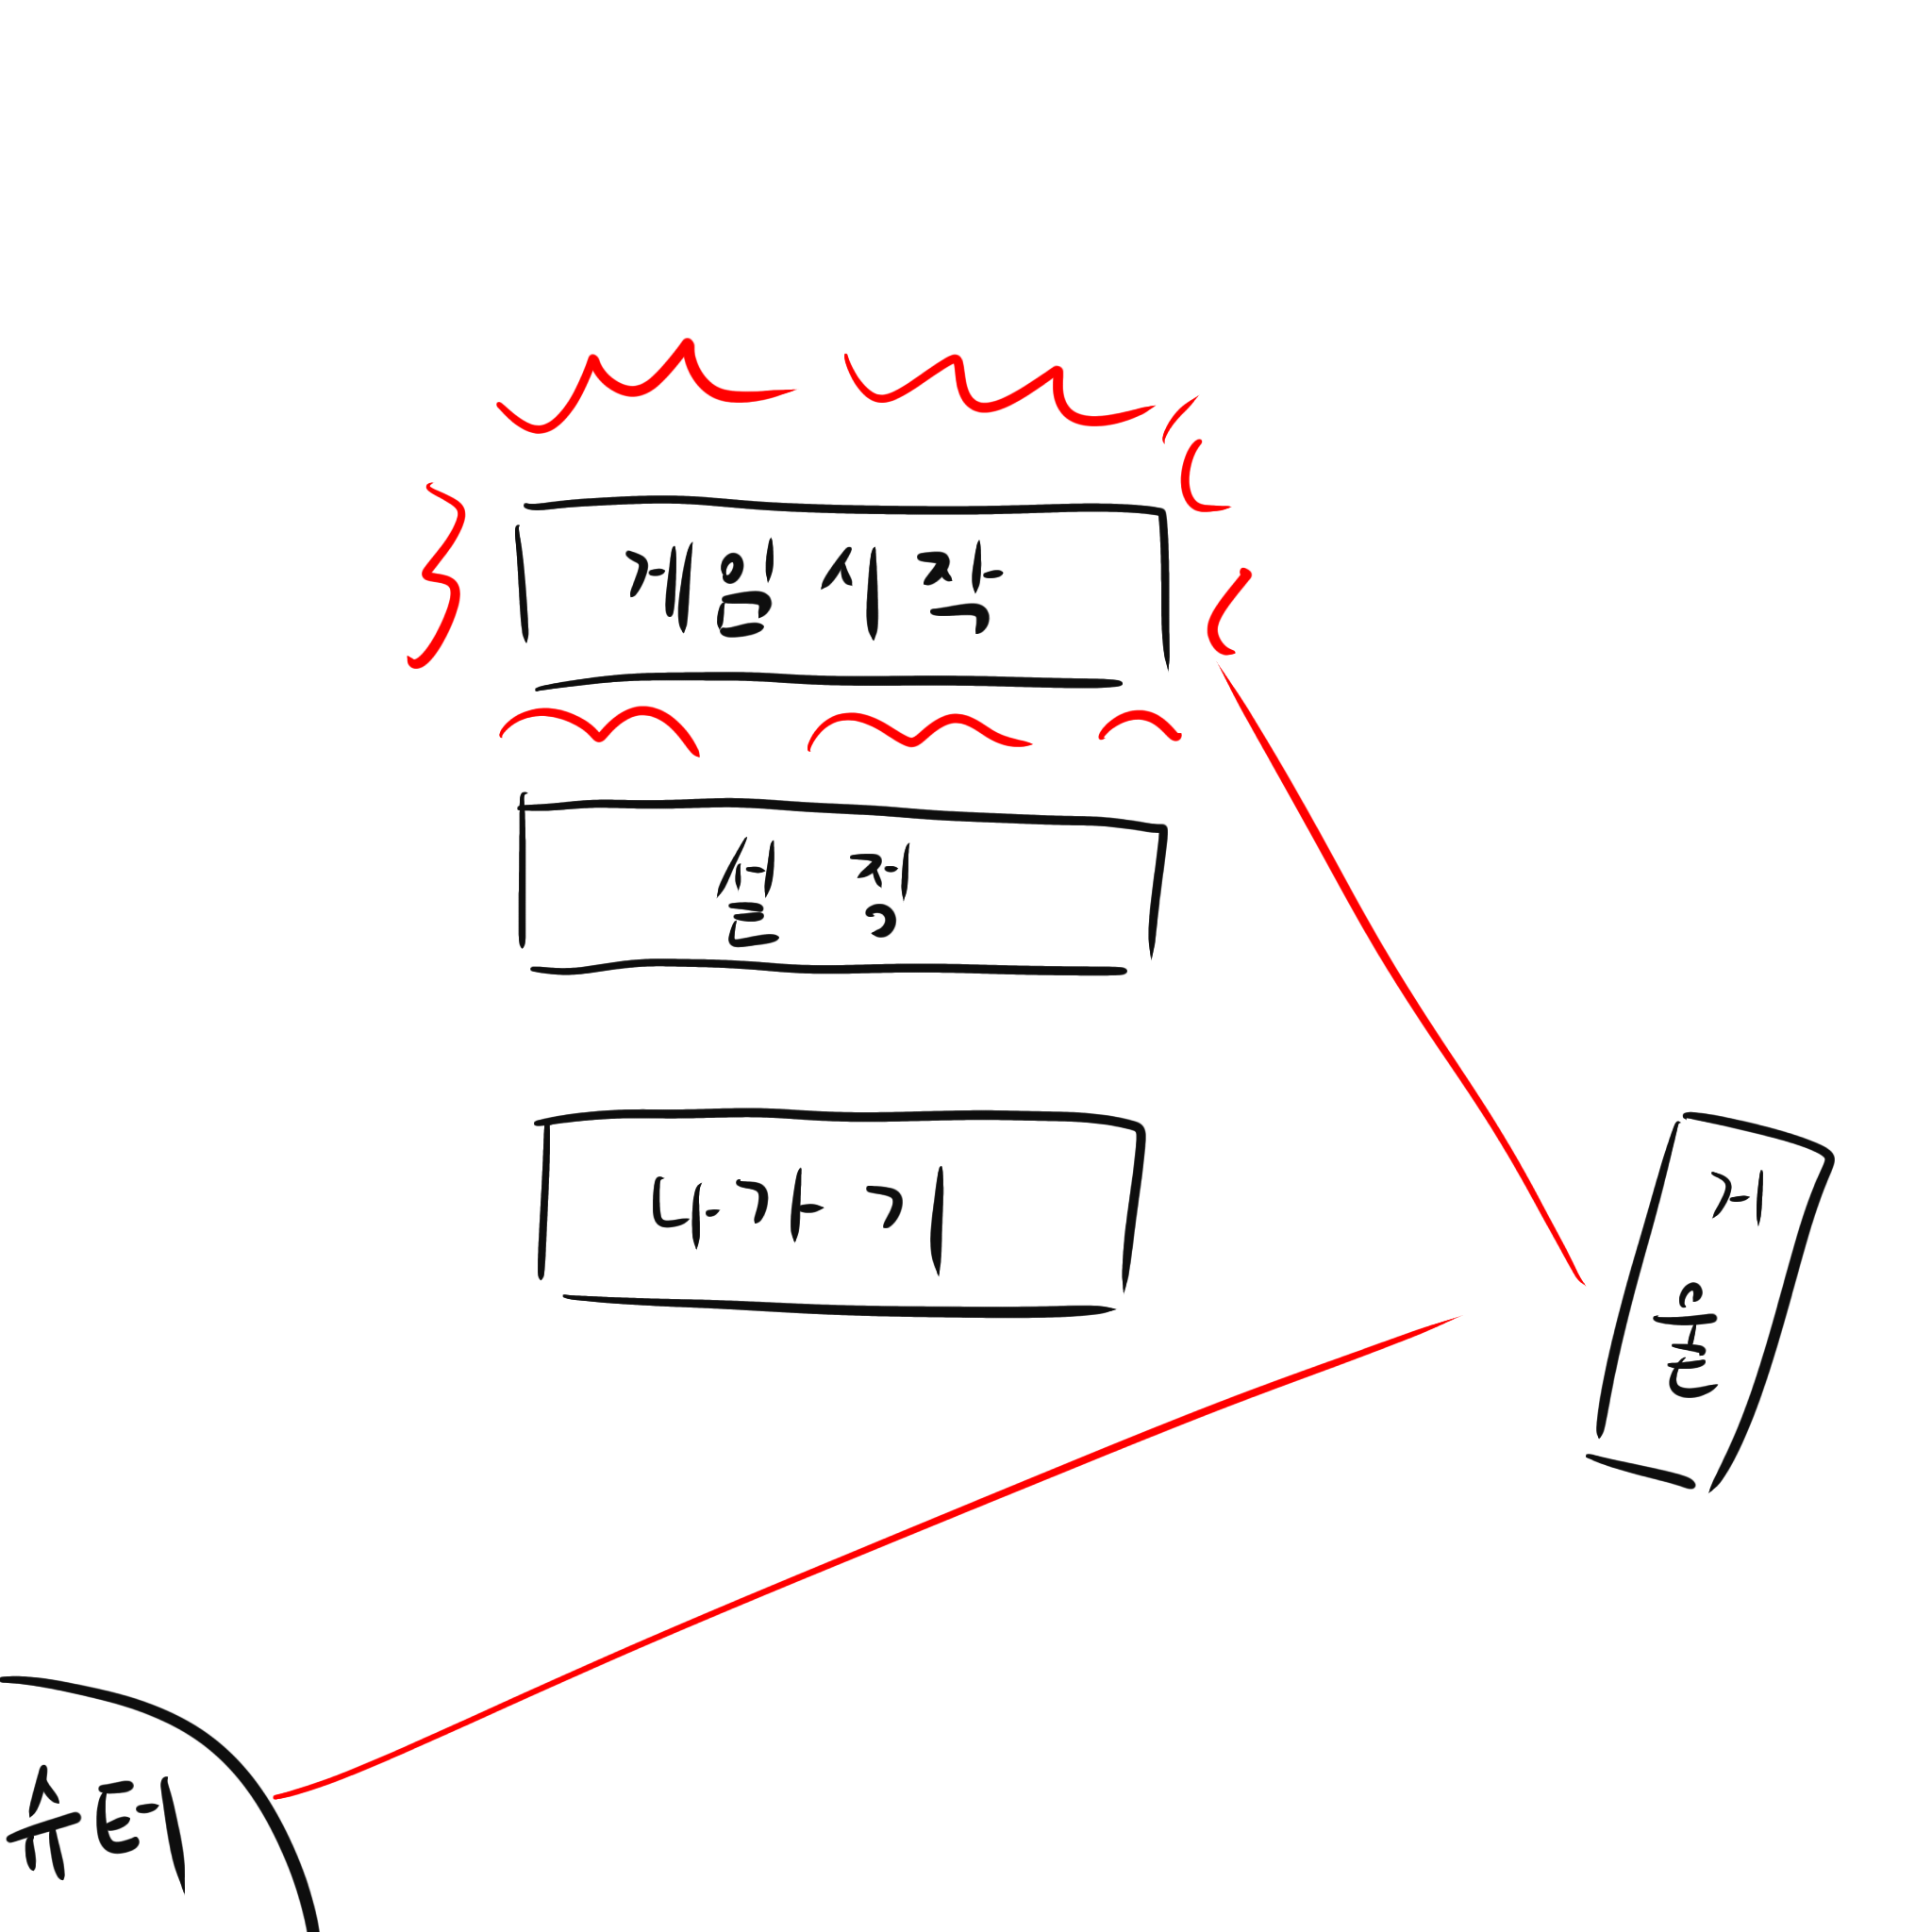 게임 시작
설정
나가기
거
울
슈터